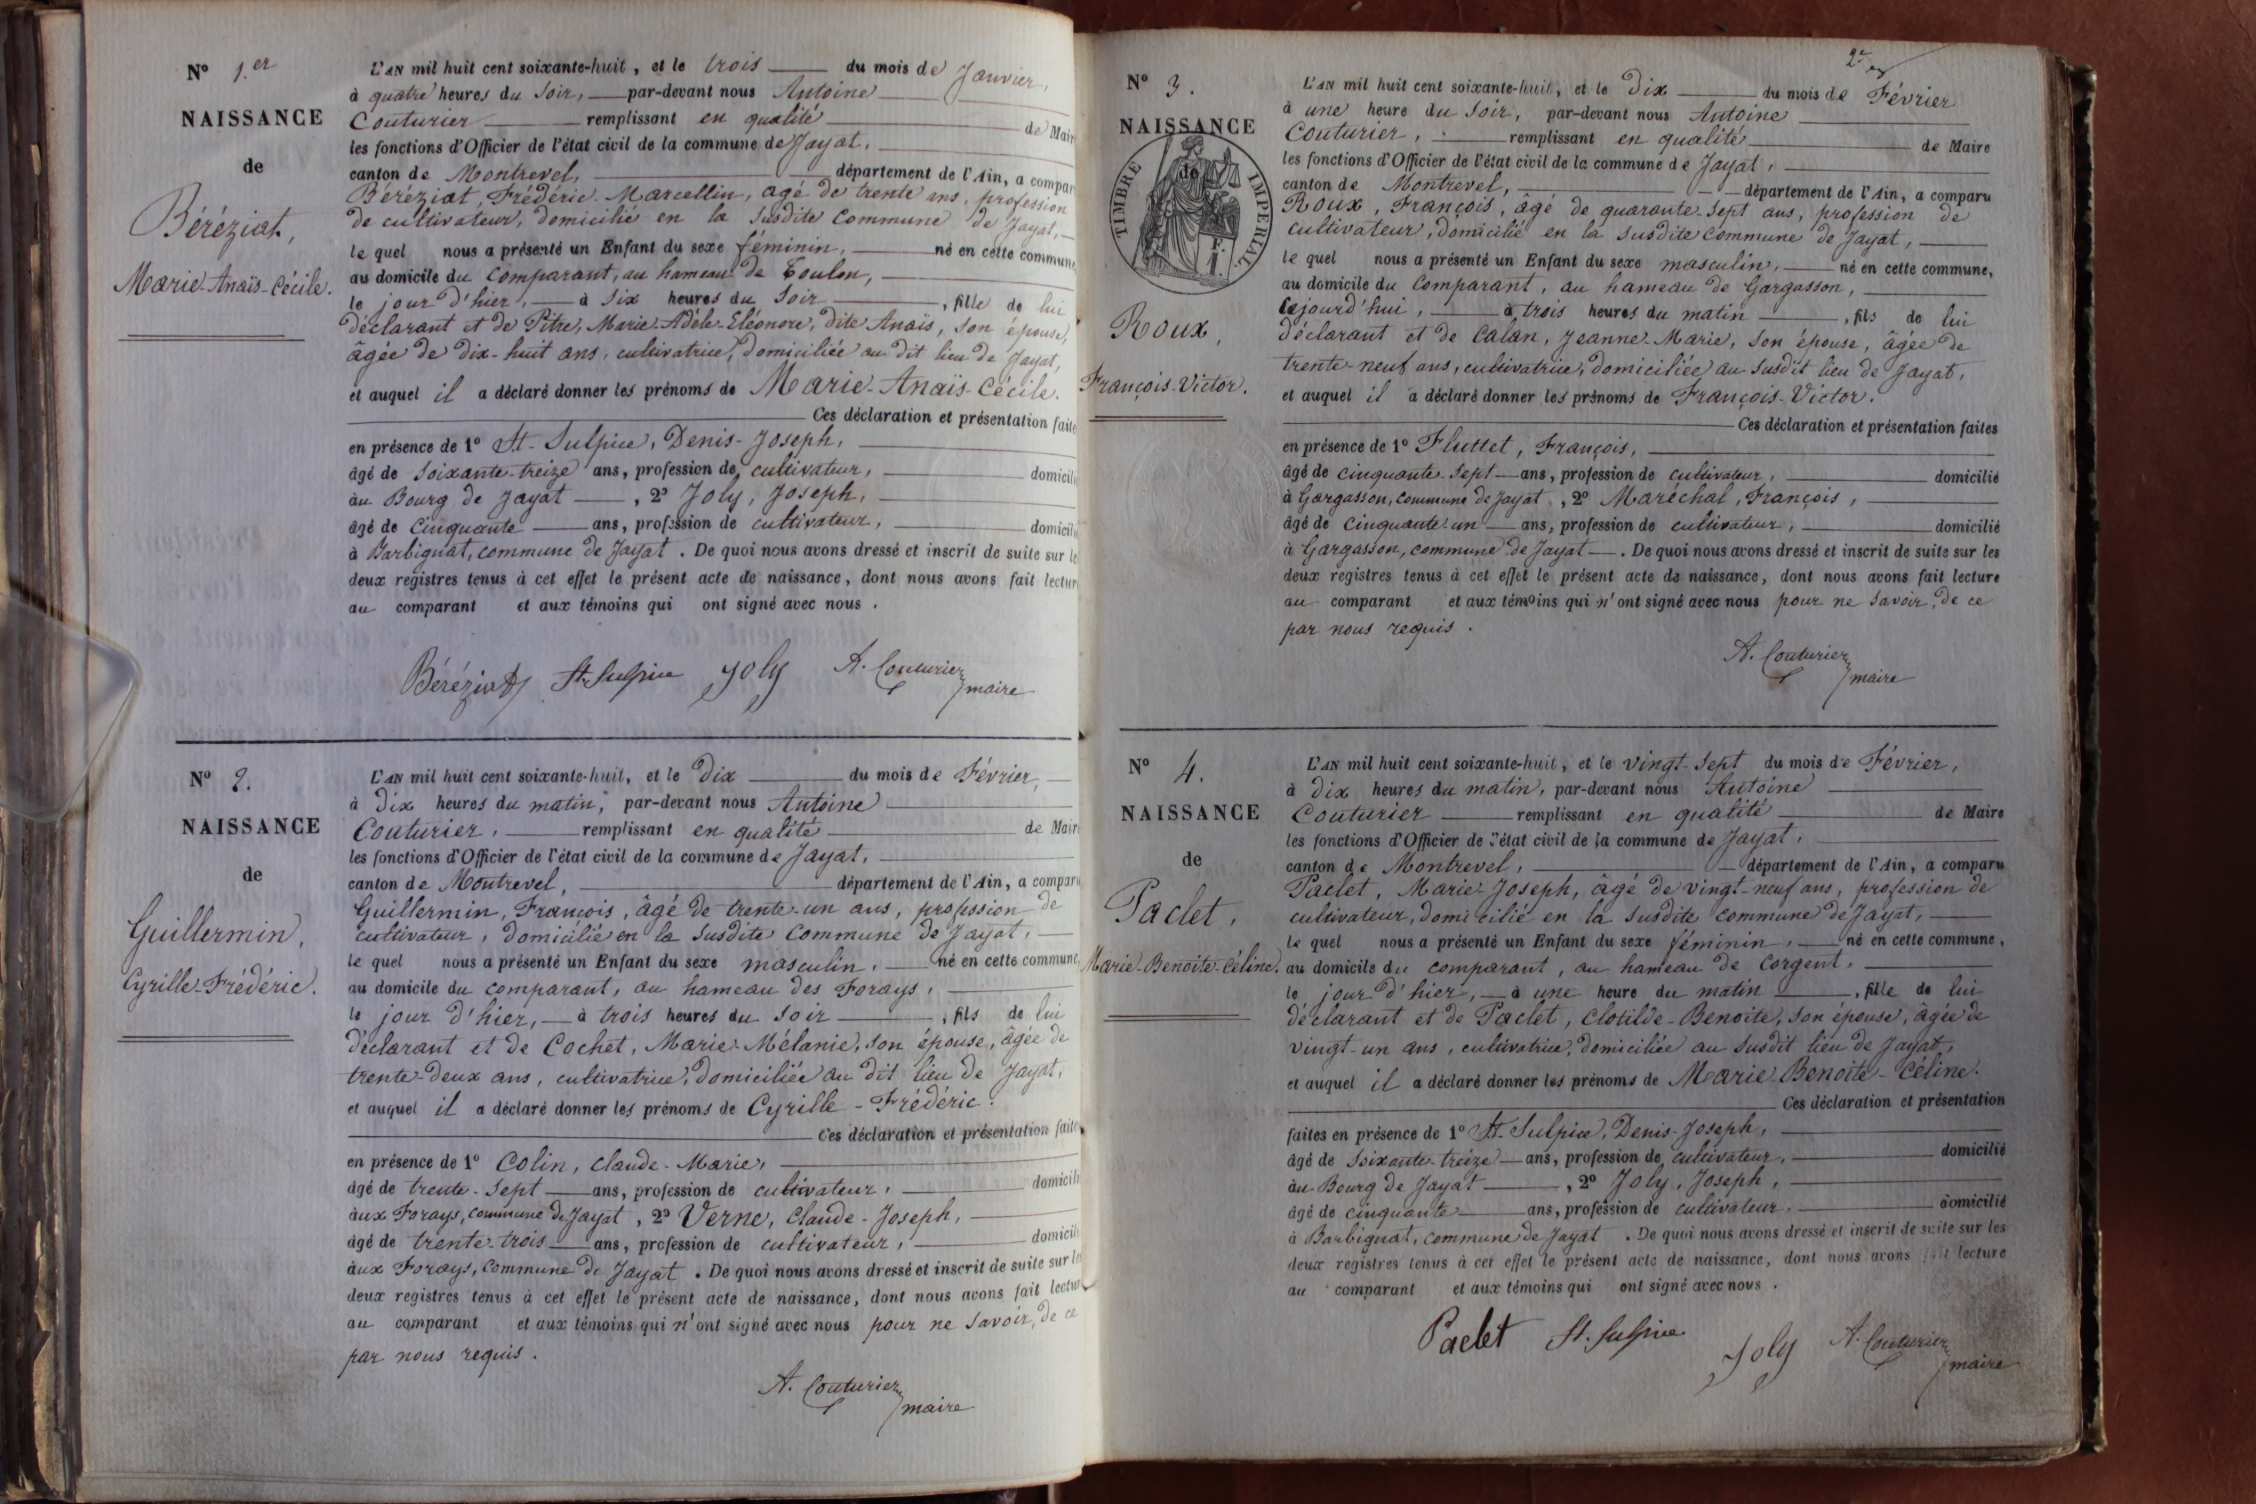 N° 1.er
NAISSANCE
de
Béréziat,
Marie-Anaïs-Cécile.
L'AN mil huit cent soixante-huit, et le trois du mois de Janvier,
à quatre heures du soir, par-devant nous Antoine
Couturier remplissant en qualité de Mair
les fonctions d'Officier de l'état civil de la commune de Jayat,
canton de Montrevel, département de l'Ain, a compar
Béréziat, Frédéric-Marcellin, agé de trente ans, profession
de cultivateur, domicilié en la susdite commune de Jayat,
le quel nous a présenté un Enfant du sexe féminin, né en cette commune
au domicile du comparant, au hameau de Toulon,
le jour d'hier, à six heures du soir, fille de lui
déclarant et de Pitre, Marie-Adèle-Eléonore, dite Anaïs, son épouse,
âgée de dix-huit ans, cultivatrice, domiciliée au dit lieu de Jayat,
et auquel il a déclaré donner les prénoms de Marie-Anaïs-Cécile.
Ces déclaration et présentation faite
en présence de 1° St-Sulpice, Denis-Joseph,
âgé de soixante-treize ans, profession de cultivateur, domicili
au Bourg de Jayat, 2° Joly, Joseph,
âgé de cinquante ans, profession de cultivateur, domicili
à Barbignat, commune de Jayat. De quoi nous avons dressé et inscrit de suite sur le
deux registres tenus à cet effet le présent acte de naissance, dont nous avons fait lectur
au comparant et aux témoins qui ont signé avec nous.
Béréziat St-Sulpice Joly A. Couturier
maire
N° 2.
NAISSANCE
de
Guillermin,
Cyrille-Frédéric.
L'AN mil huit cent soixante-huit, et le dix du mois de Février,
à dix heures du matin, par-devant nous Antoine
Couturier, remplissant en qualité de Mair
les fonctions d'Officier de l'état civil de la commune de Jayat,
canton de Montrevel, département de l'Ain, a compar
Guillermin, François, âgé de trente-un ans, profession de
cultivateur, domicilié en la susdite commune de Jayat,
le quel nous a présenté un Enfant du sexe masculin, né en cette commune
au domicile du comparant, au hameau des Forays,
le jour d'hier, à trois heures du soir, fils de lui
déclarant et de Cochet, Marie-Mélanie, son épouse, âgée de
trente-deux ans, cultivatrice, domiciliée au dit lieu de Jayat,
et auquel il a déclaré donner les prénoms de Cyrille-Frédéric.
Ces déclaration et présentation faite
en présence de 1° Colin, Claude-Marie,
âgé de trente-sept ans, profession de cultivateur, domicili
aux Forays, commune de Jayat, 2° Verne, Claude-Joseph,
âgé de trente-trois ans, profession de cultivateur, domicili
aux Forays, commune de Jayat. De quoi nous avons dressé et inscrit de suite sur le
deux registres tenus à cet effet le présent acte de naissance, dont nous avons fait lectur
au comparant et aux témoins qui n'ont signé avec nous pour ne savoir, de ce
par nous requis.
A. Couturier
maire
N° 3.
NAISSANCE
de
TIMBRE IMPERIAL
Roux,
François-Victor.
L'AN mil huit cent soixante-huit, et le dix du mois de Février
à une heure du soir, par-devant nous Antoine
Couturier, remplissant en qualité de Maire
les fonctions d'Officier de l'état civil de la commune de Jayat,
canton de Montrevel, département de l'Ain, a comparu
Roux, François, âgé de quarante-sept ans, profession de
cultivateur, domicilié en la susdite commune de Jayat,
le quel nous a présenté un Enfant du sexe masculin, né en cette commune,
au domicile du comparant, au hameau de Gargasson,
cejourd'hui, à trois heures du matin, fils de lui
déclarant et de Calan, Jeanne-Marie, son épouse, âgée de
trente-neuf ans, cultivatrice, domiciliée au susdit lieu de Jayat,
et auquel il a déclaré donner les prénoms de François-Victor.
Ces déclaration et présentation faites
en présence de 1° Fluttet, François,
âgé de cinquante-sept ans, profession de cultivateur, domicilié
à Gargasson, commune de Jayat, 2° Maréchal, François,
âgé de cinquante-un ans, profession de cultivateur, domicilié
à Gargasson, commune de Jayat. De quoi nous avons dressé et inscrit de suite sur les
deux registres tenus à cet effet le présent acte de naissance, dont nous avons fait lecture
au comparant et aux témoins qui n'ont signé avec nous pour ne savoir, de ce
par nous requis.
A. Couturier
maire
N° 4.
NAISSANCE
de
Paclet,
Marie-Benoite-Céline.
L'AN mil huit cent soixante-huit, et le vingt-sept du mois de Février,
à dix heures du matin, par-devant nous Antoine
Couturier remplissant en qualité de Maire
les fonctions d'Officier de l'état civil de la commune de Jayat,
canton de Montrevel, département de l'Ain, a comparu
Paclet, Marie-Joseph, âgé de vingt-neuf ans, profession de
cultivateur, domicilié en la susdite commune de Jayat,
le quel nous a présenté un Enfant du sexe féminin, né en cette commune,
au domicile du comparant, au hameau de Corgent,
le jour d'hier, à une heure du matin, fille de lui
déclarant et de Paclet, Clotilde-Benoite, son épouse, âgée de
vingt-un ans, cultivatrice, domiciliée au susdit lieu de Jayat,
et auquel il a déclaré donner les prénoms de Marie-Benoite-Céline.
Ces déclaration et présentation
faites en présence de 1° St-Sulpice, Denis-Joseph,
âgé de soixante-treize ans, profession de cultivateur, domicilié
au Bourg de Jayat, 2° Joly, Joseph,
âgé de cinquante ans, profession de cultivateur, domicilié
à Barbignat, commune de Jayat. De quoi nous avons dressé et inscrit de suite sur les
deux registres tenus à cet effet le présent acte de naissance, dont nous avons fait lecture
au comparant et aux témoins qui ont signé avec nous.
Paclet St-Sulpice Joly A. Couturier
maire